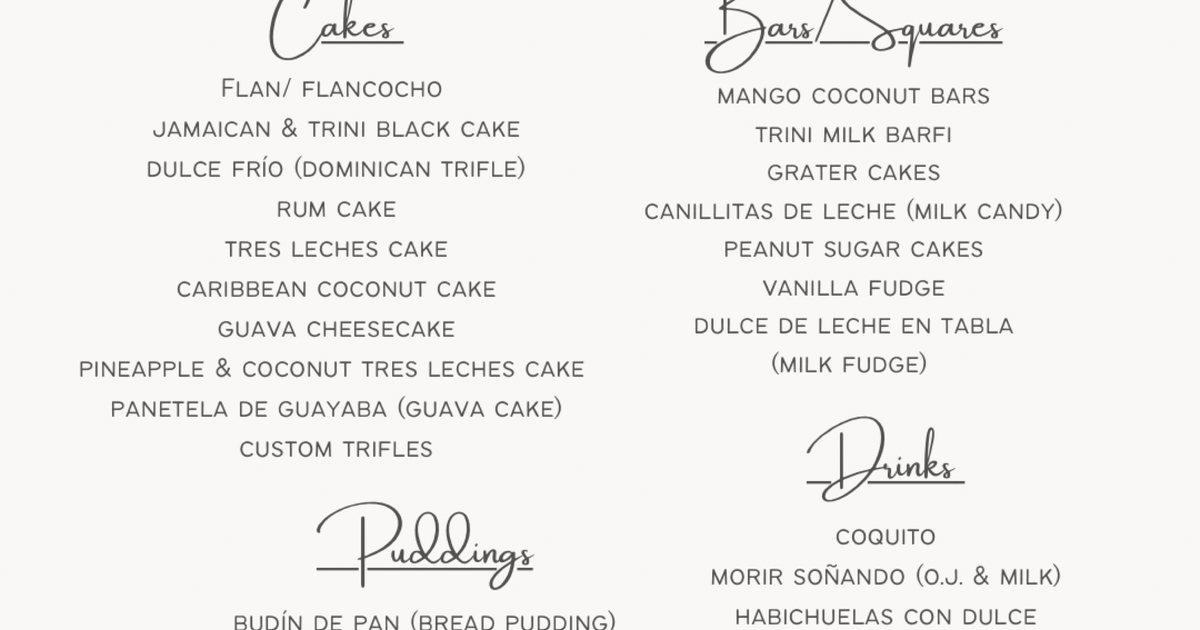 Cakes
Flan/ flancocho
JAMAICAN & TRINI BLACK CAKE
DULCE FRÍO (DOMINICAN TRIFLE)
RUM CAKE
TRES LECHES CAKE
CARIBBEAN COCONUT CAKE
GUAVA CHEESECAKE
PINEAPPLE & COCONUT TRES LECHES CAKE
PANETELA DE GUAYABA (GUAVA CAKE)
CUSTOM TRIFLES
Puddings
BUDÍN DE PAN (BREAD PUDDING)
Bars/Squares
MANGO COCONUT BARS
TRINI MILK BARFI
GRATER CAKES
CANILLITAS DE LECHE (MILK CANDY)
PEANUT SUGAR CAKES
VANILLA FUDGE
DULCE DE LECHE EN TABLA
(MILK FUDGE)
Drinks
COQUITO
MORIR SOÑANDO (O.J. & MILK)
HABICHUELAS CON DULCE